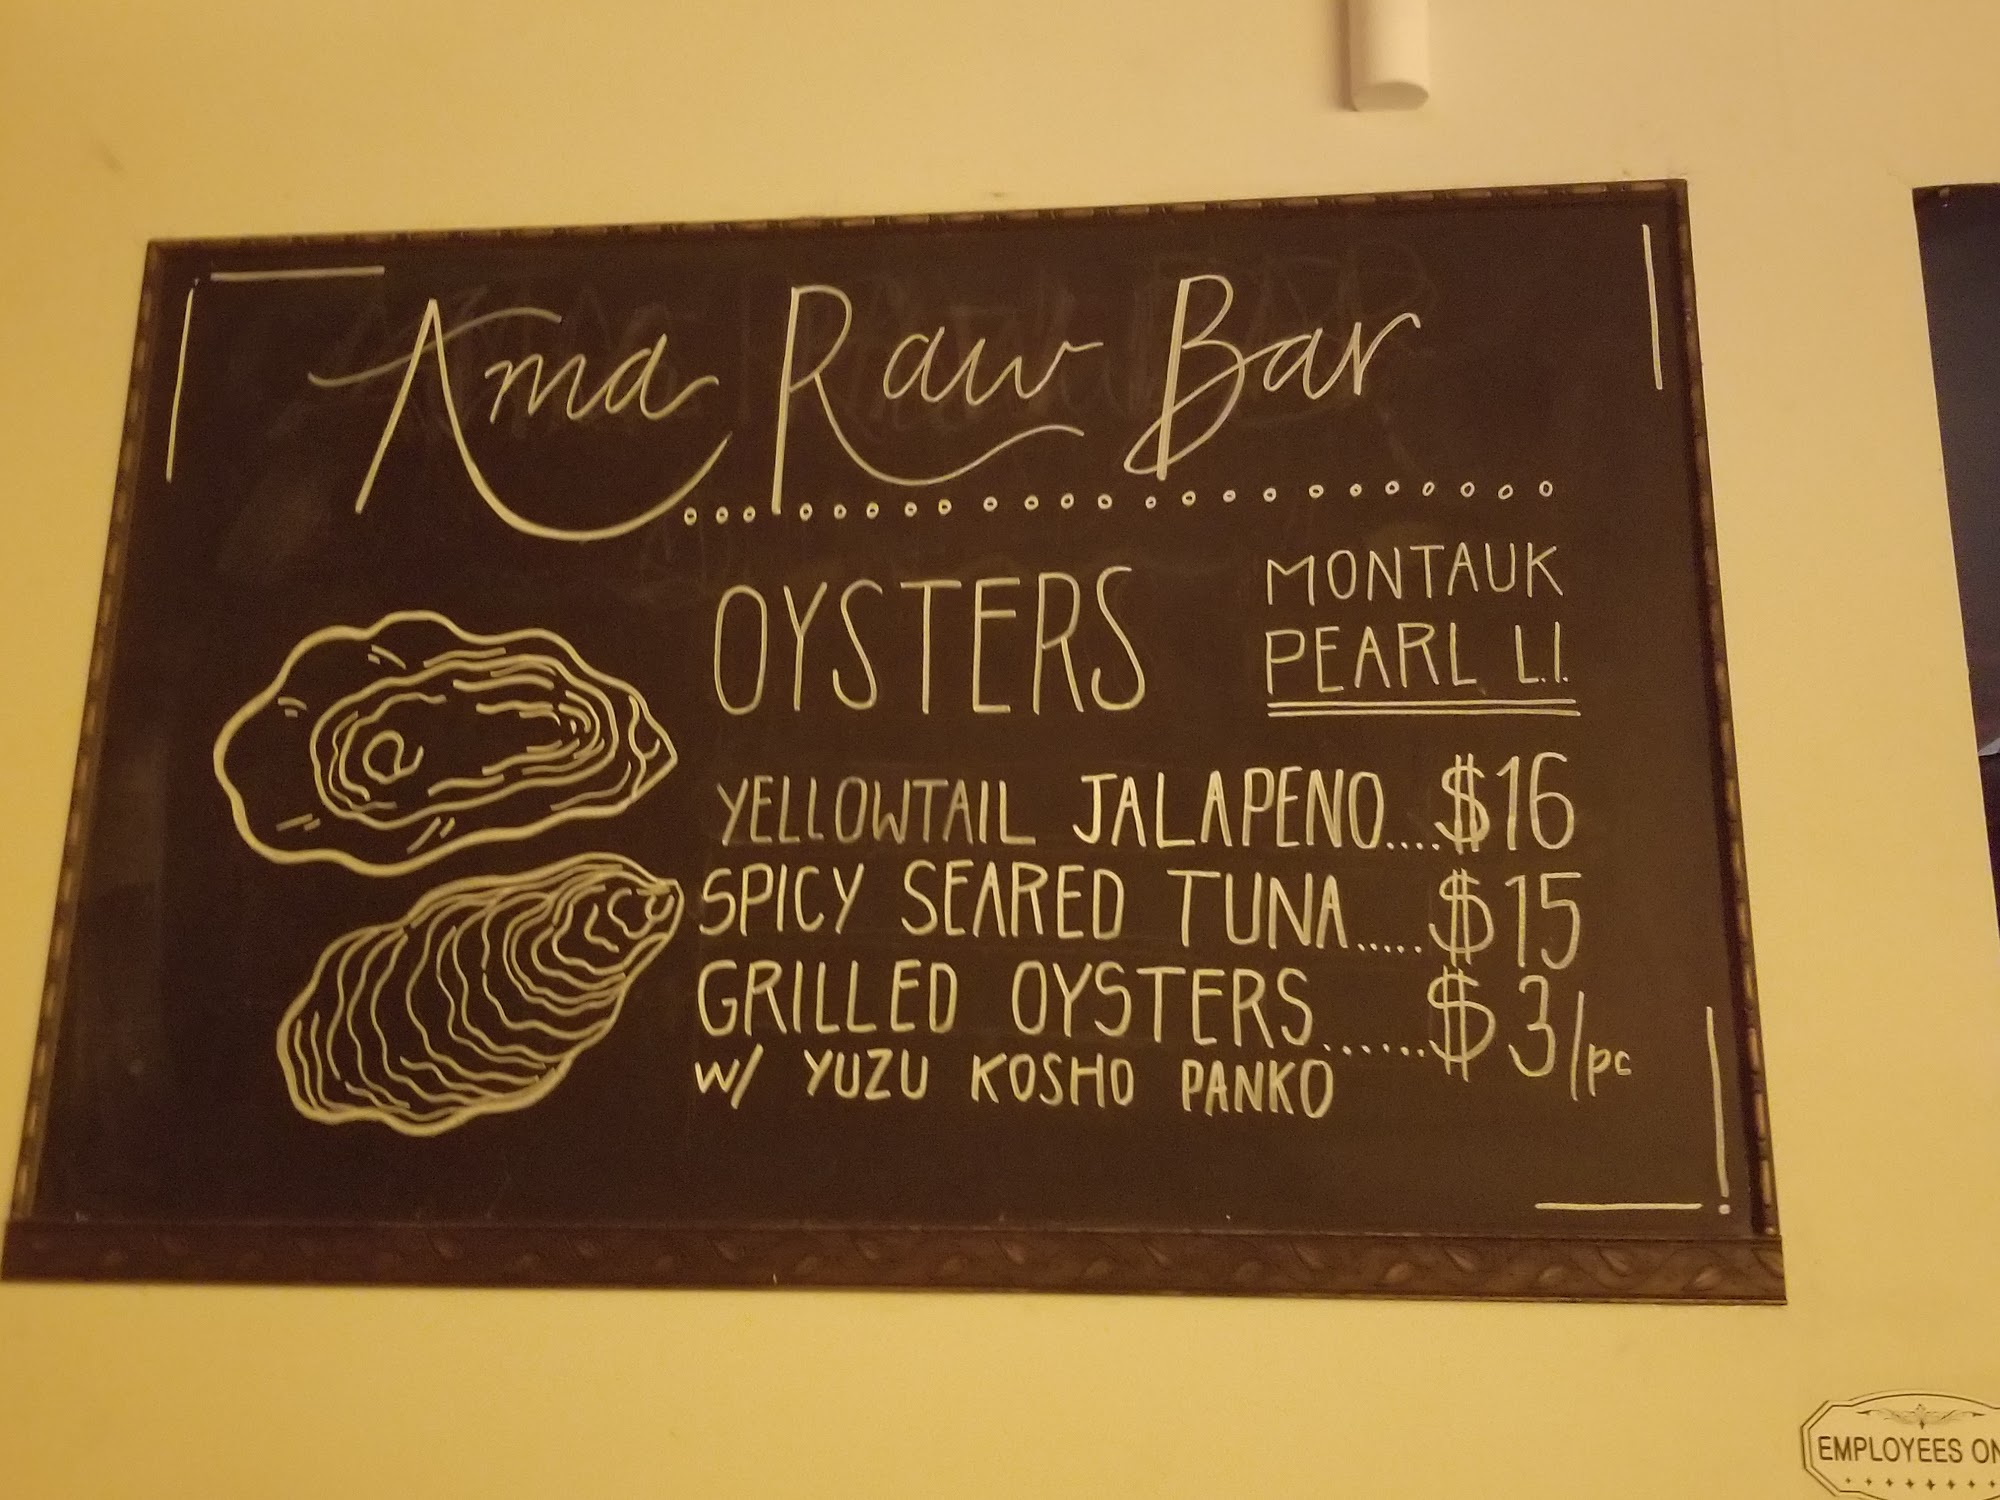 Ama Raw Bar
OYSTERS
MONTAUK
PEARL L.I.
YELLOWTAIL JALAPENO....$16
SPICY SEARED TUNA.....$15
GRILLED OYSTERS......$3/pc
W/ YUZU KOSHO PANKO
EMPLOYEES ON